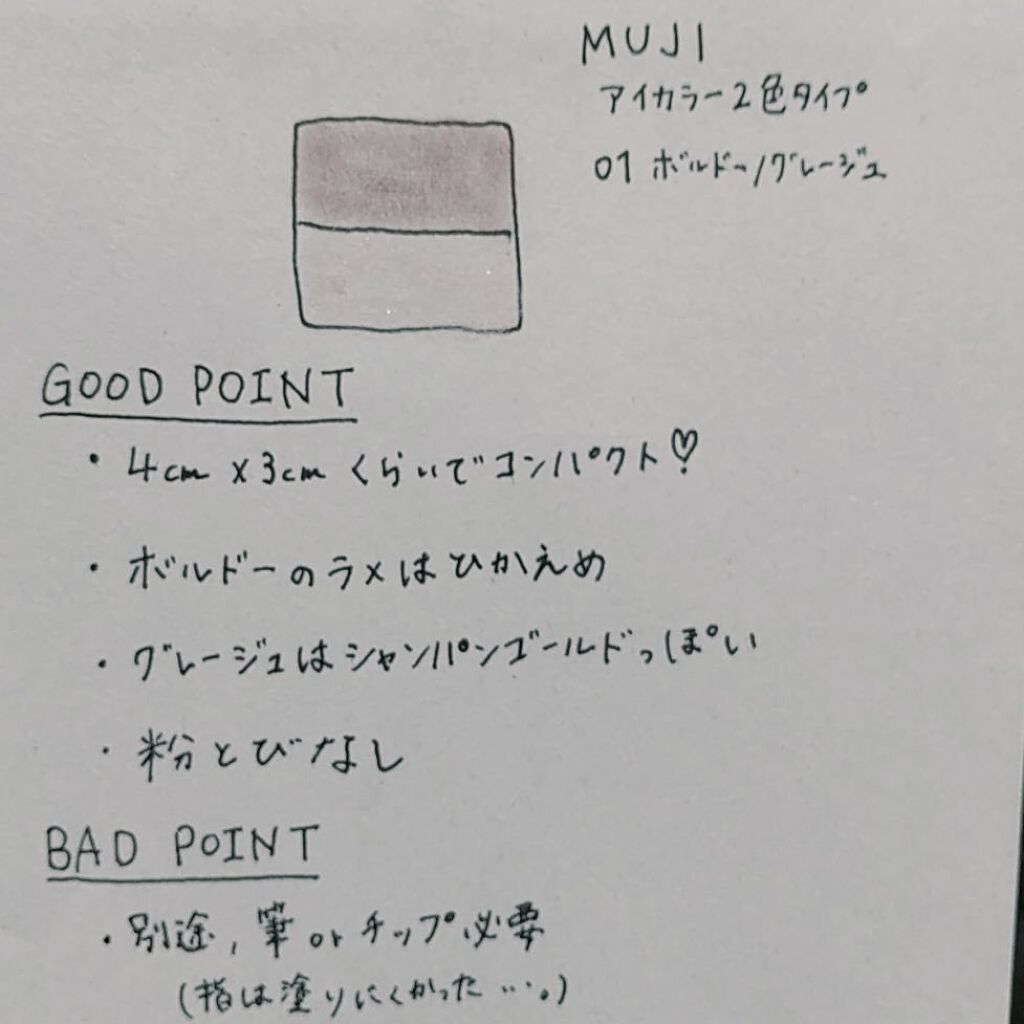 MUJI
アイカラー2色タイプ
01 ボルドー/グレージュ
GOOD POINT
・4cm×3cmくらいでコンパクト♡
・ボルドーのラメはひかえめ
・グレージュはシャンパンゴールドっぽい
・粉とびなし
BAD POINT
・別途,筆orチップ必要
(指は塗りにくかった…。)